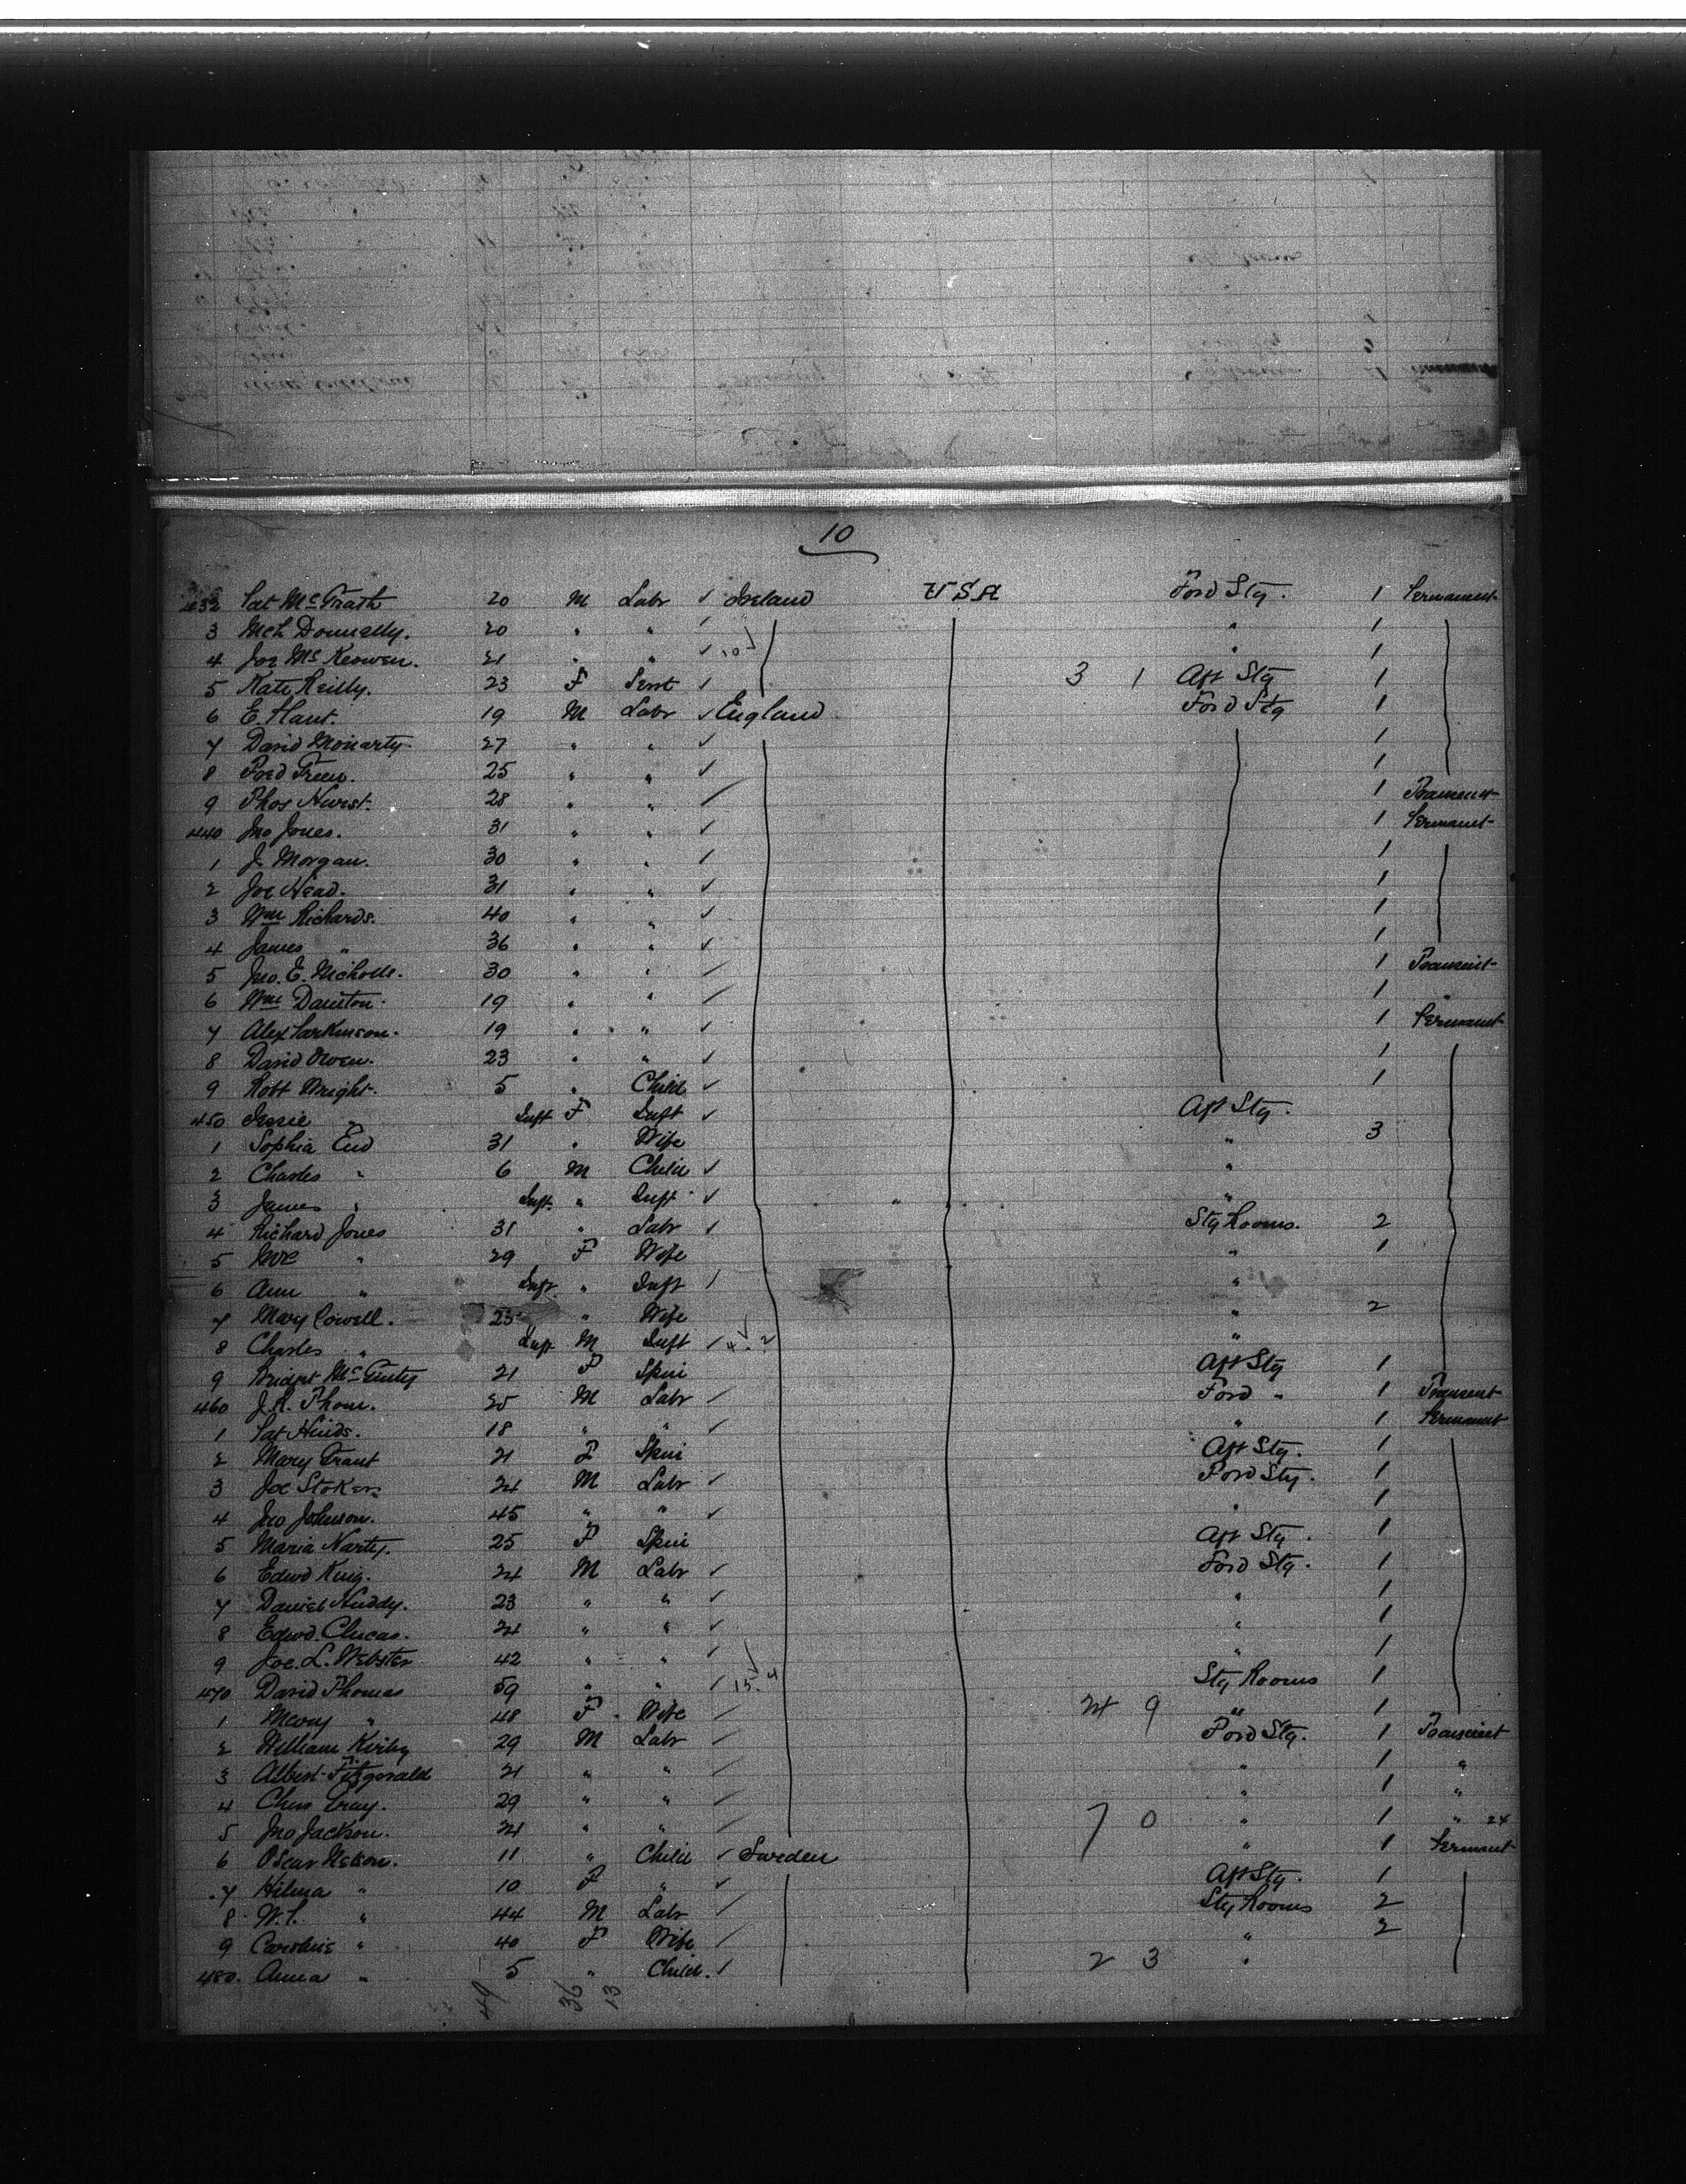 10
432 Pat McGrath 20 M Labr ✓ Ireland U S A Ford Stg. 1 Permanent
3 Mch Donnelly. 20 " " ✓ " 1
4 Joe McKeowen. 21 " " ✓ 10 ✓ " 1
5 Kate Reilly. 23 F Servt ✓ 3 1 Aft Stg 1
6 E. Hant. 19 M Labr ✓ England Ford Stg 1
7 David Moriarty. 27 " " ✓ 1
8 Fred Green. 25 " " ✓ 1
9 Thos Hurst. 28 " " ✓ 1 Transient
440 Jno Jones. 31 " " ✓ 1 Permant
1 J. Morgan. 30 " " ✓ 1
2 Joe Head. 31 " " ✓ 1
3 Wm Richards. 40 " " ✓ 1
4 James " 36 " " ✓ 1
5 Jno. E. Nicholls. 30 " " ✓ 1 Transient
6 Wm Dainton. 19 " " ✓ 1 "
7 Alex Parkinson. 19 " " ✓ 1 Permant
8 David Owen. 23 " " ✓ 1
9 Robt Wright. 5 " Child ✓ 1
450 Jessie " Inft F Inft ✓ Aft Stg.
1 Sophia End 31 " Wife " 3
2 Charles " 6 M Child ✓ "
3 James " Inft. " Inft ✓ "
4 Richard Jones 31 " Labr ✓ Stg Rooms. 2
5 Mre " 29 F Wife " 1
6 Ann " Inft. " Inft ✓ "
7 Mary Cowell. 23 " Wife " 2
8 Charles " Inft M Inft ✓ 4 ✓ 2 "
9 Bridget McGinty 21 F Spin Aft Stg 1
460 J. R. Thom. 25 M Labr ✓ Ford " 1 Transent
1 Pat Hinds. 18 " " ✓ " 1 Permanut
2 Mary Grant 21 F Spin Aft Stg. 1
3 Joe Stoker. 24 M Labr ✓ Ford Stg. 1
4 Jno Johnson. 45 " " ✓ " 1
5 Maria Harty. 25 F Spin Aft Stg. 1
6 Edwd King. 24 M Labr ✓ Ford Stg. 1
7 Daniel Huddy. 23 " " ✓ " 1
8 Edwd. Clucas. 24 " " ✓ " 1
9 Joe. L. Webster 42 " " ✓ " 1
470 David Thomas 59 " " ✓ 15 ✓ 4 Stg Rooms 1
1 Mary " 48 F Wife ✓ 24 9 " 1
2 William Kirby 29 M Labr ✓ Ford Stg. 1 Transient
3 Albert Fitzgerald 21 " " ✓ " 1 "
4 Chas Gray. 29 " " ✓ " 1 "
5 Jno Jackson. 24 " " ✓ 7 0 " 1 " 24
6 Oscar Nelson. 11 " Child ✓ Sweden " 1 Permant
7 Hilma " 10 F " ✓ Aft Stg. 1
8 W. P. " 44 M Labr ✓ Stg Rooms 2
9 Caroline " 40 F Wife ✓ " 2
480. Anna " 5 " Child. ✓ 2 3 "
49 36 13